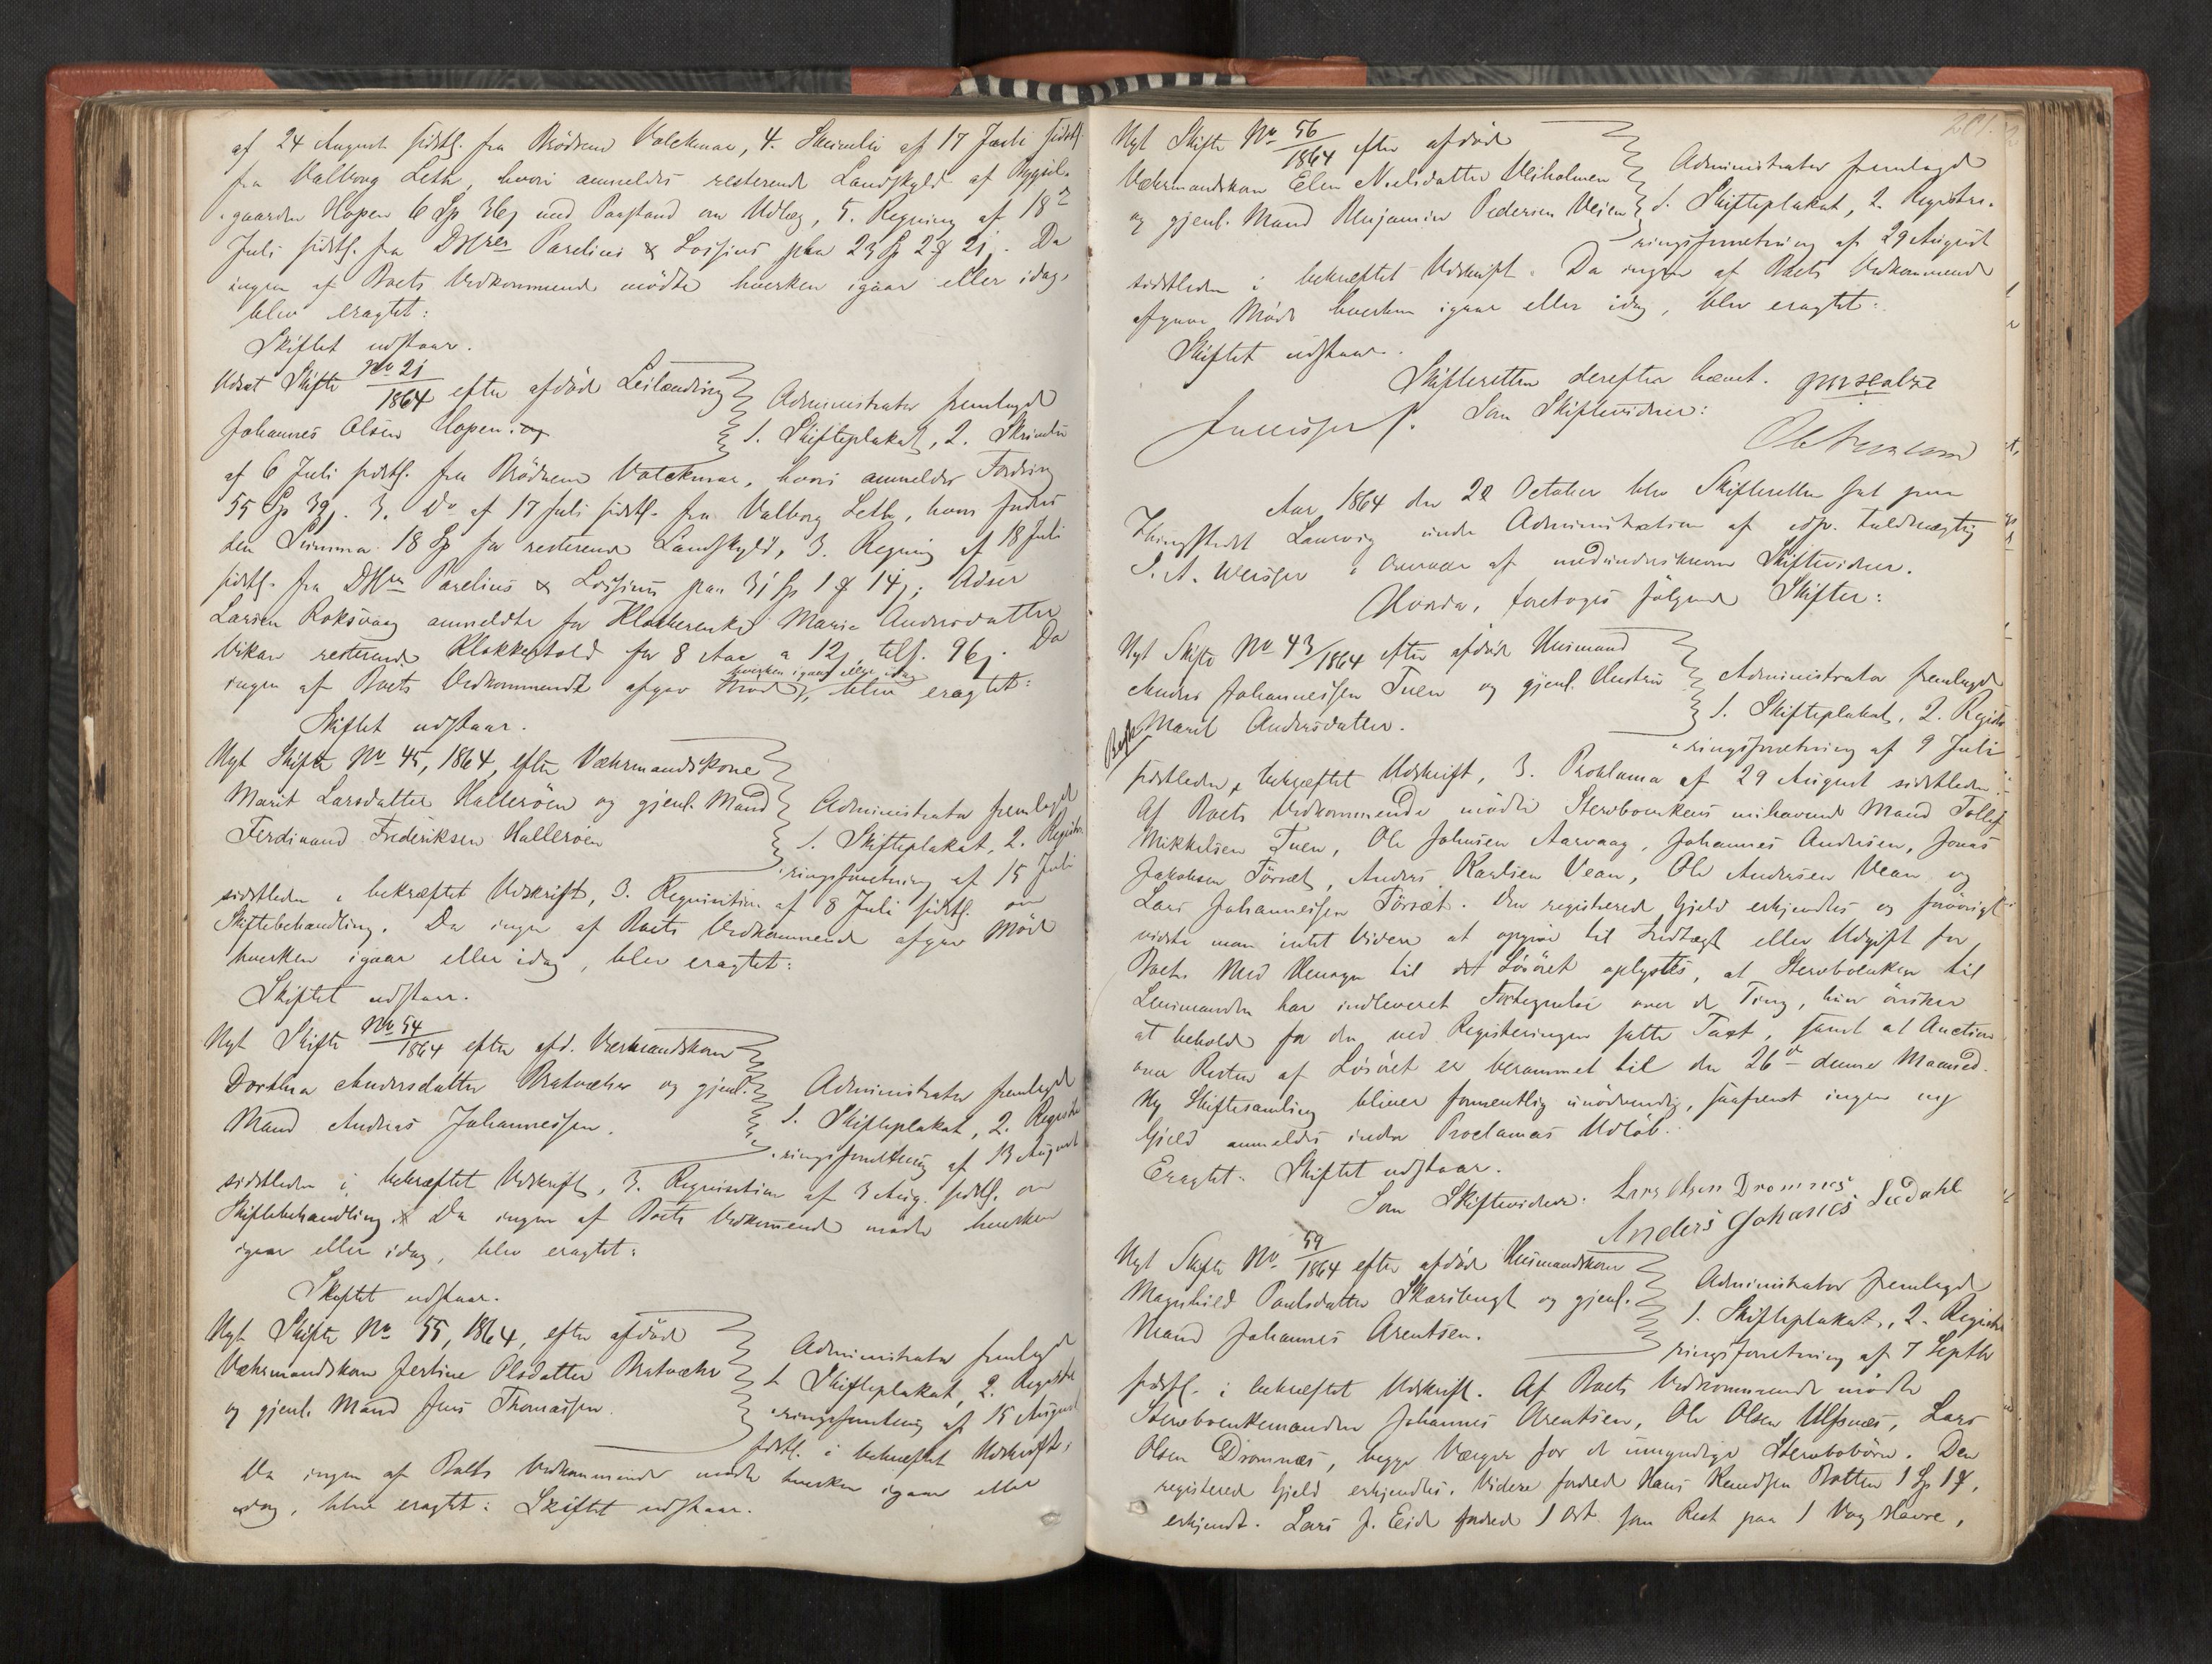 af 24 August sidstl. fra Brødrene Volckmar, 4. Skrivelse af 17 Juli sidstl.
fra Valborg Leth, hvori anmeldes resterende Landskyld af Bygsel-
gaarden Hopen 6 Sp 36 ß med Paastand om Udlæg, 5. Regning af 18de
Juli sidstl. fra DHrer Parelius & Lossius paa 23 Sp 2 ₰ 21 ß. Da
ingen af Boets Vedkommende mødte hverken igaar eller idag,
blev eragtet:
Skiftet udstaar.
Udsat Skifte No 21/1864 efter afdøde Leilænding
Johannes Olsen Hopen.
Administrator fremlagde
1. Skifteplakat, 2. Skrivelse
af 6 Juli sidstl. fra Brødrene Volckmar, hvori anmeldes Fordring
55 Sp 39 ß. 3. Do af 17 Juli sidstl. fra Valborg Leth, hvori fordres
den Summa 18 Sp for resterende Landskyld, 3. Regning af 18 Juli
sidstl. fra DHrr Parelius & Lossius paa 31 Sp 1 ₰ 14 ß;
Larsen Roksvaag anmeldte for Klokkerenke Maria Andersdatter
Vikan resterende Klokkertold for 8 Aar a 12 ß tils. 96 ß. Da
hverken igaar eller idag
ingen af Boets Vedkommende afgav Møde, blev eragtet:
Skiftet udstaar.
Nyt Skifte No 45, 1864, efter Væhrmandskone
Marit Larsdatter Hallerøen og gjenl. Mand
Ferdinand Frederiksen Hallerøen
Administrator fremlagde
1. Skifteplakat, 2. Registre-
ringsforretning af 15 Juli
sidstleden i bekræftet Udskrift, 3. Requisition af 8 Juli sidstl. om
Skiftebehandling. Da ingen af Boets Vedkommende afgav Møde
hverken igaar eller idag, blev eragtet:
Skiftet udstaar.
Nyt Skifte No 54/1864 efter afd. Værmandskone
Dorthea Andersdatter Bratvæhr og gjenl.
Mand Andreas Johannessen.
Administrator fremlagde
1. Skifteplakat, 2. Registre-
ringsforretning af 13 August
sidstleden i bekræftet Udskrift, 3. Requisition af 3 Aug. sidstl. om
Skiftebehandling. Da ingen af Boets Vedkommende mødte hverken
igaar eller idag, blev eragtet:
Skiftet udstaar.
Nyt Skifte No 55, 1864, efter afdøde
Væhrmandskone Olsdatter Bratvæhr
og gjenl. Mand Jens Thomassen.
Administrator fremlagde
1. Skifteplakat, 2. Registre-
ringsforretning af 15 August
sidstl. i bekræftet Udskrift.
Da ingen af Boets Vedkommende mødte hverken igaar eller
idag, blev eragtet: Skiftet udstaar.
261.
Nyt Skifte No 56/1864 efter afdøde
Væhrmandskone Elen Nielsdatter Veiholmen
og gjenl. Mand Benjamin Pedersen Veien
Administrator fremlagde
1. Skifteplakat, 2. Registre-
ringsforretning af 29 August
sidstleden i bekræftet Udskrift. Da ingen af Boets Vedkommende
afgave Møde hverken igaar eller idag, blev eragtet:
Skiftet udstaar.
Skifteretten derefter hævet.
Som Skiftevidner:
Aar 1864 den 22 October blev Skifteretten sat paa
Thingstedet Laurvig under Administration af edsv. Fuldmægtig
i Overvær af medunderskrevne Skiftevidner.
Hvorda, foretoges følgende Skifter:
Nyt Skifte No 43/1864 efter afdøde Huusmand
Anders Johannessen Tuen og gjenl. Hustru
Marit Andersdatter.
Administrator fremlagde
1. Skifteplakat, 2. Registre-
ringsforretning af 9 Juli
sidstleden i bekræftet Udskrift, 3. Proklama af 29 August sidstleden.
Af Boets Vedkommende mødte Stervboenkens nuhavende Mand Tollef
Mikkelsen Tuen, Ole Johnsen Aarvaag, Johannes Andersen, Jonas
Jakobsen Førsæt, Anders Karlsen Vean, Ole Andersen Vean og
Lars Johannessen Førsæt. Den registrerede Gjeld erkjendtes og forøvrigt
vidste man intet videre at opgive til Indtægt eller Udgift for
Boet. Med Hensyn til det Løsøret oplystes, at Stervboenken til
Lensmanden har indleveret Fortegnelse over de Ting, hun ønsker
at beholde for den ved Registreringen satte Taxt, samt at Auction
over Resten af Løsøret er berammet til den 26de denne Maaned.
Ny Skiftesamling bliver formentlig unødvendig, saafremt ingen ny
Gjeld anmeldes inden Proclamas Udløb.
Eragtet: Skiftet udstaar.
Som Skiftevidner: Lars Olsen Dromnes
Anders Johannes Leedahl
Nyt Skifte No 59/1864 efter afdøde Huusmandskone
Magnhild Paulsdatter Skaribugt og gjenl.
Mand Johannes Arentsen.
Administrator fremlagde
1. Skifteplakat, 2. Registre-
ringsforretning af 7 Septbr
sidstl. i bekræftet Udskrift. Af Boets Vedkommende mødte
Stervboenkemanden Johannes Arentsen, Ole Olsen Ulfsnæs, Lars
Olsen Dromnæs, begge Værger for de umyndige Stervbobørn. Den
registrerede Gjeld erkjendtes. Videre fordrede Hans Knudsen Botten 1 Sp 1 ₰,
erkjendt. Lars J. Eide fordrede 1 Ort som Rest paa 1 Vog Havre,